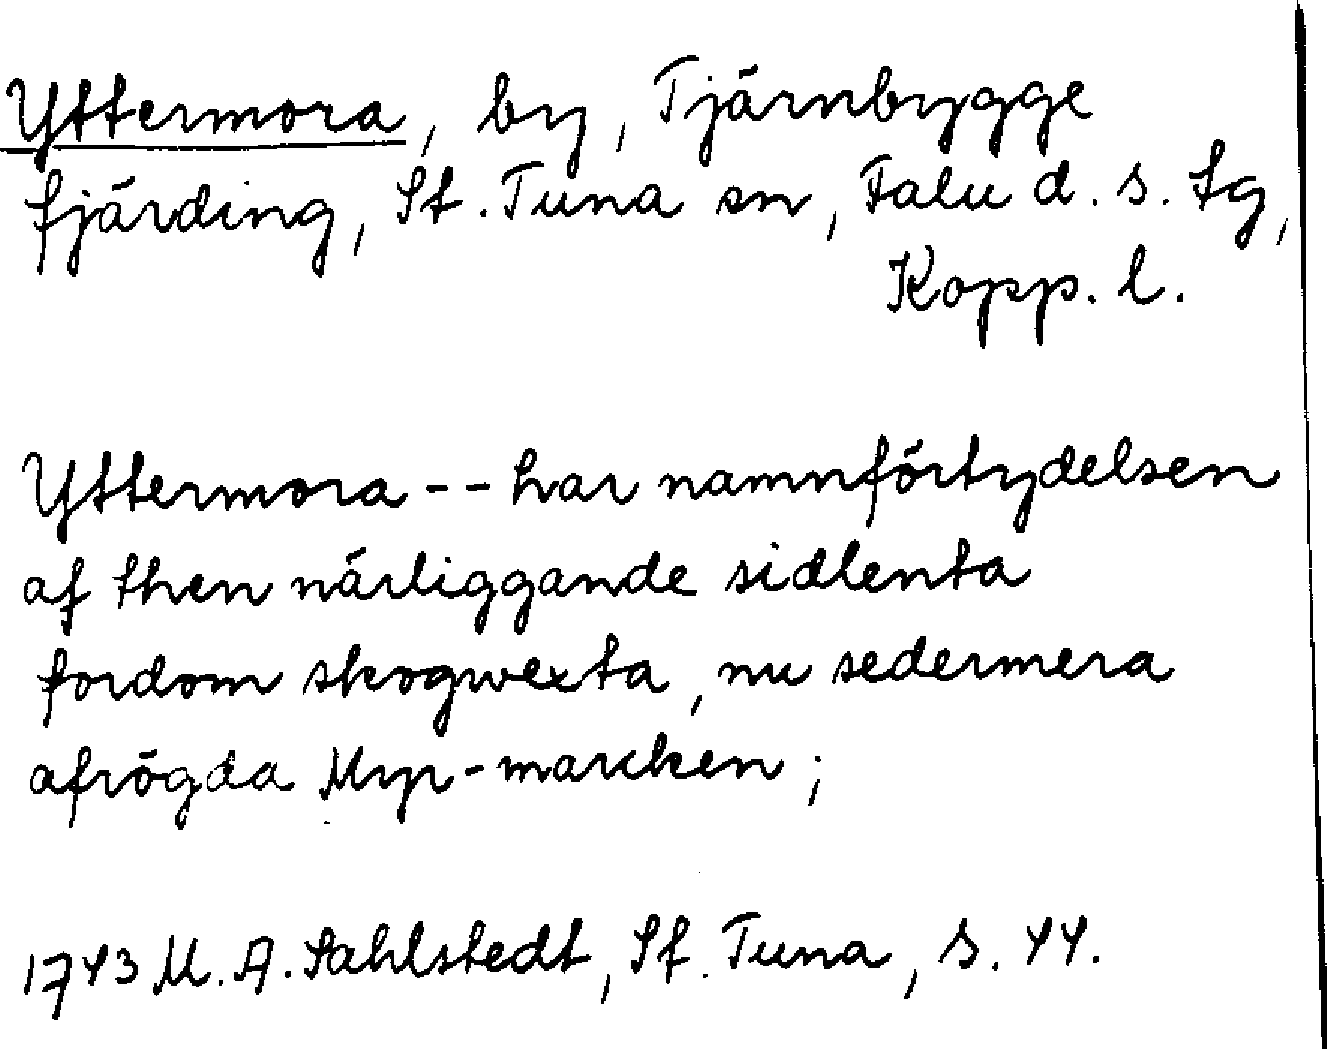 Yttermora, by, Tjärnbygge
fjärding, St. Tuna sn, Falu d. s. tg,
Kopp. l.
Yttermora -- har namnförtydelsen
af then närliggande sidlenta
fordom skogwexta, nu sedermera
afrögda Myr-marcken ;
1743 M. A. Sahlstedt, St. Tuna, s. 44.